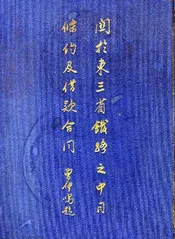 關於東三省鐵路之中日
條約及借款合同